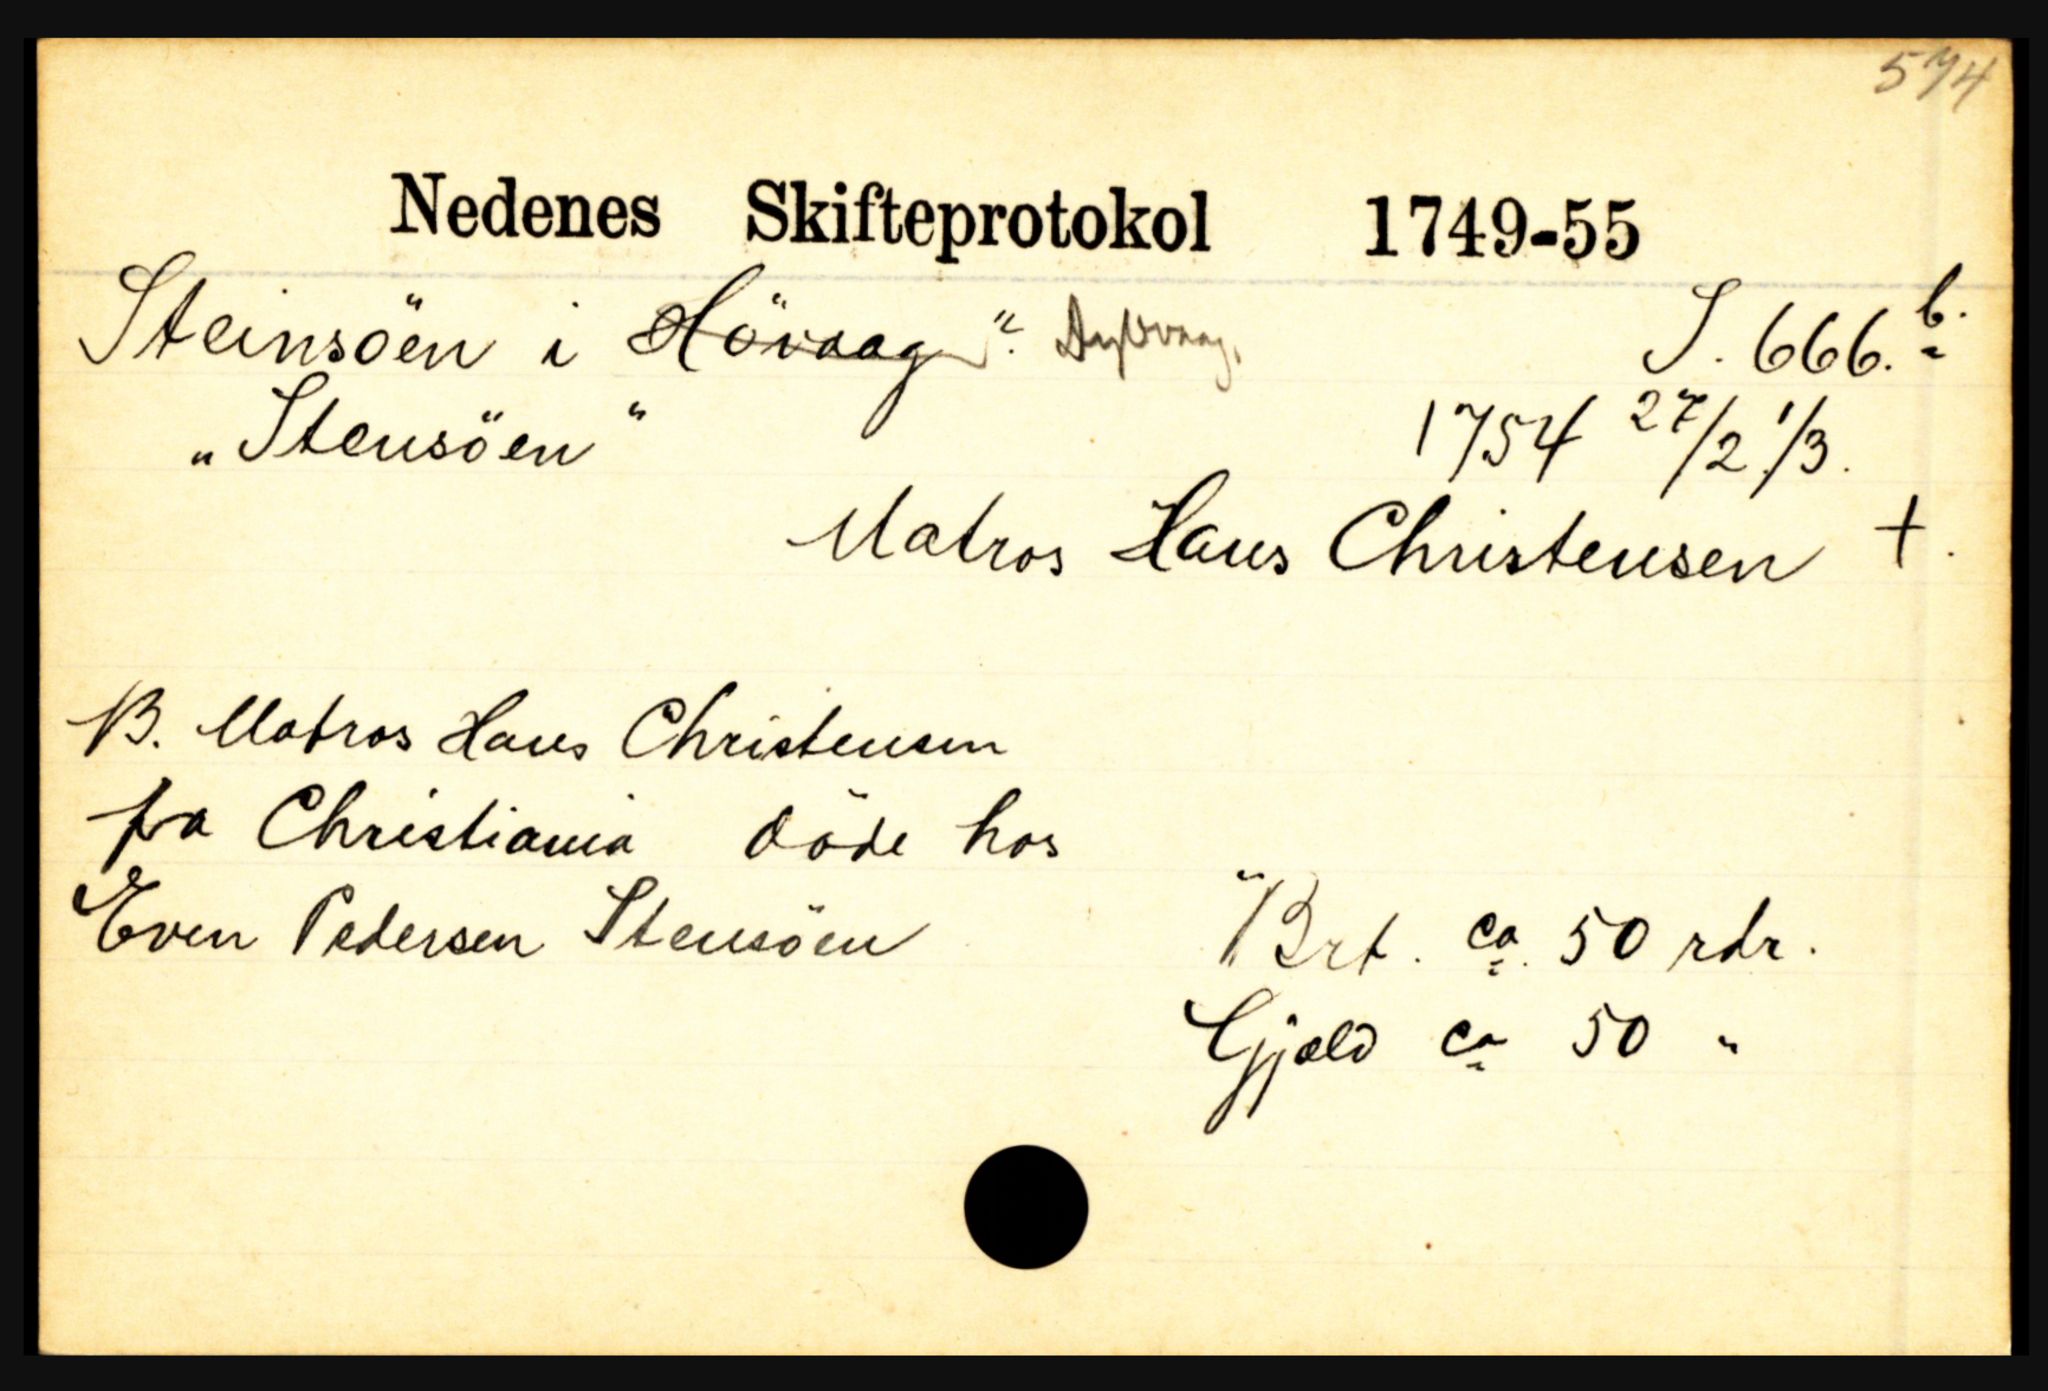 574
Nedenes Skifteprotokol 1749-55
Steinsöen i Hövaag". Dybvaag. S. 666.b.
"Stensöen" 1754 27/2 1/3.
Matros Hans Christensen +.
B. Matros Hans Christensen
fra Christiania döde hos
Even Pedersen Stensöen Brt. ca. 50 rdr.
Gjæld ca 50 "